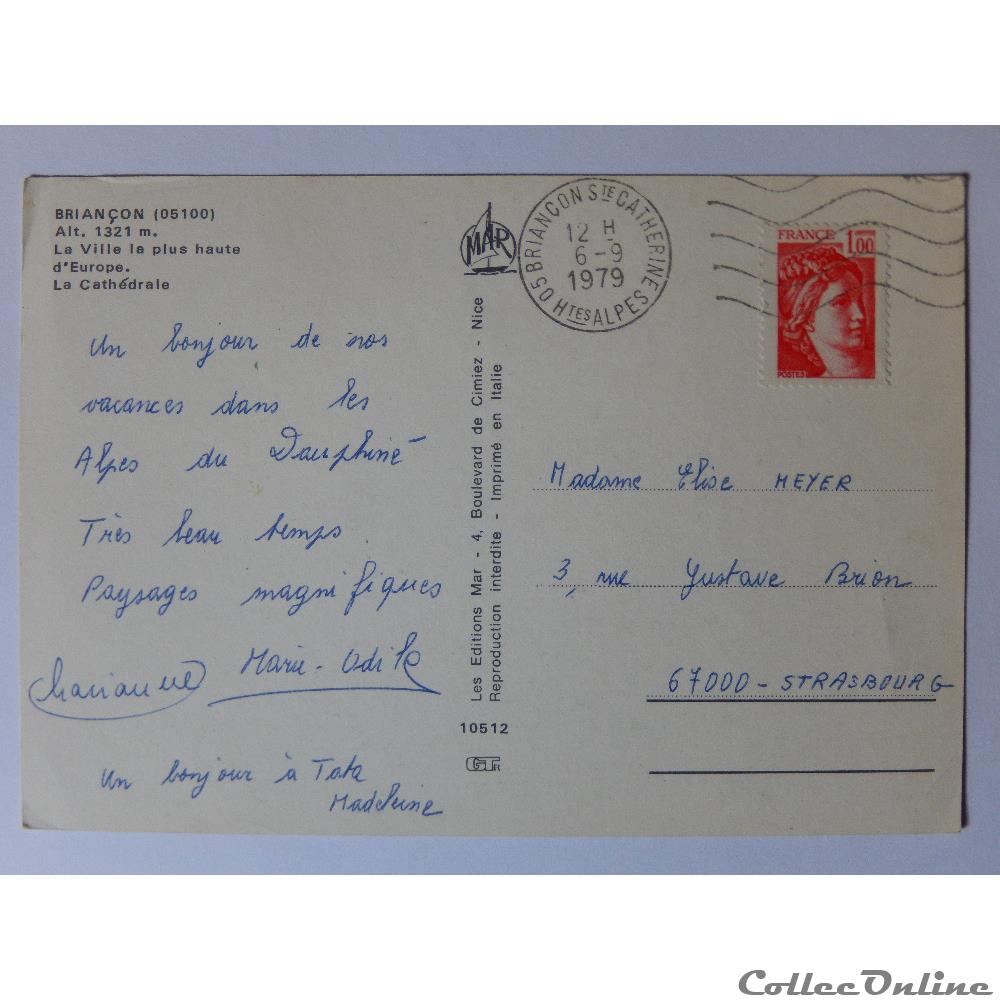 BRIANÇON (05100)
Alt. 1321 m.
La Ville la plus haute
d'Europe.
La Cathédrale
Un bonjour de nos
vacances dans les
Alpes du Dauphiné
Très beau temps.
Paysages magnifiques
Marie-Odile
Un bonjour à Tata
Madeleine
MAR
Les Editions Mar - 4, Boulevard de Cimiez - Nice
Reproduction interdite - Imprimé en Italie
10512
05 BRIANÇON STE CATHERINE
12 H
6-9
1979
HTES ALPES
FRANCE
1,00
POSTES
Madame Elise MEYER
3, rue Gustave Brion
67000 - STRASBOURG
CollecOnline